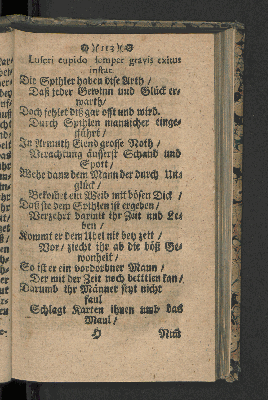 )( 113 )(
Lusori cupido semper gravis exitus
instat.
Die Spihler haben dise Arth /
Daß jeder Gewinn und Glück er-
warth /
Doch fehlet diß gar offt und wird.
Durch Spihlen mannicher einge-
führet /
In Armuth Elend grosse Noth /
Verachtung äusserst Schand und
Spott /
Wehe dann dem Mann der durch Un-
glück /
Bekommet ein Weib mit bösen Dick /
Daß sie dem Spihlen ist ergeben /
Verzehrt darmit ihr Zeit und Le-
ben /
Kommt er dem Übel nit bey zeit /
Vor / ziecht ihr ab die böß Ge-
wonheit /
So ist er ein verdorbner Mann /
Der mit der Zeit noch bettlen kan /
Darumb ihr Männer seyt nicht
faul
Schlagt Karten ihnen umb das
Maul /
H Nim